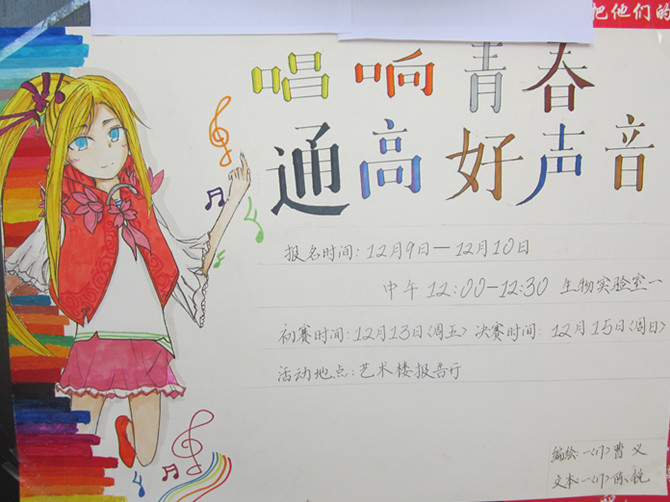 把他们的
唱响青春
通高好声音
报名时间: 12月9日—12月10日
中午 12:00-12:30 生物实验室一
初赛时间: 12月13日〈周五〉 决赛时间: 12月15日〈周日〉
活动地点: 艺术楼报告厅
编绘: 一〈17〉 曹义
文本: 一〈17〉